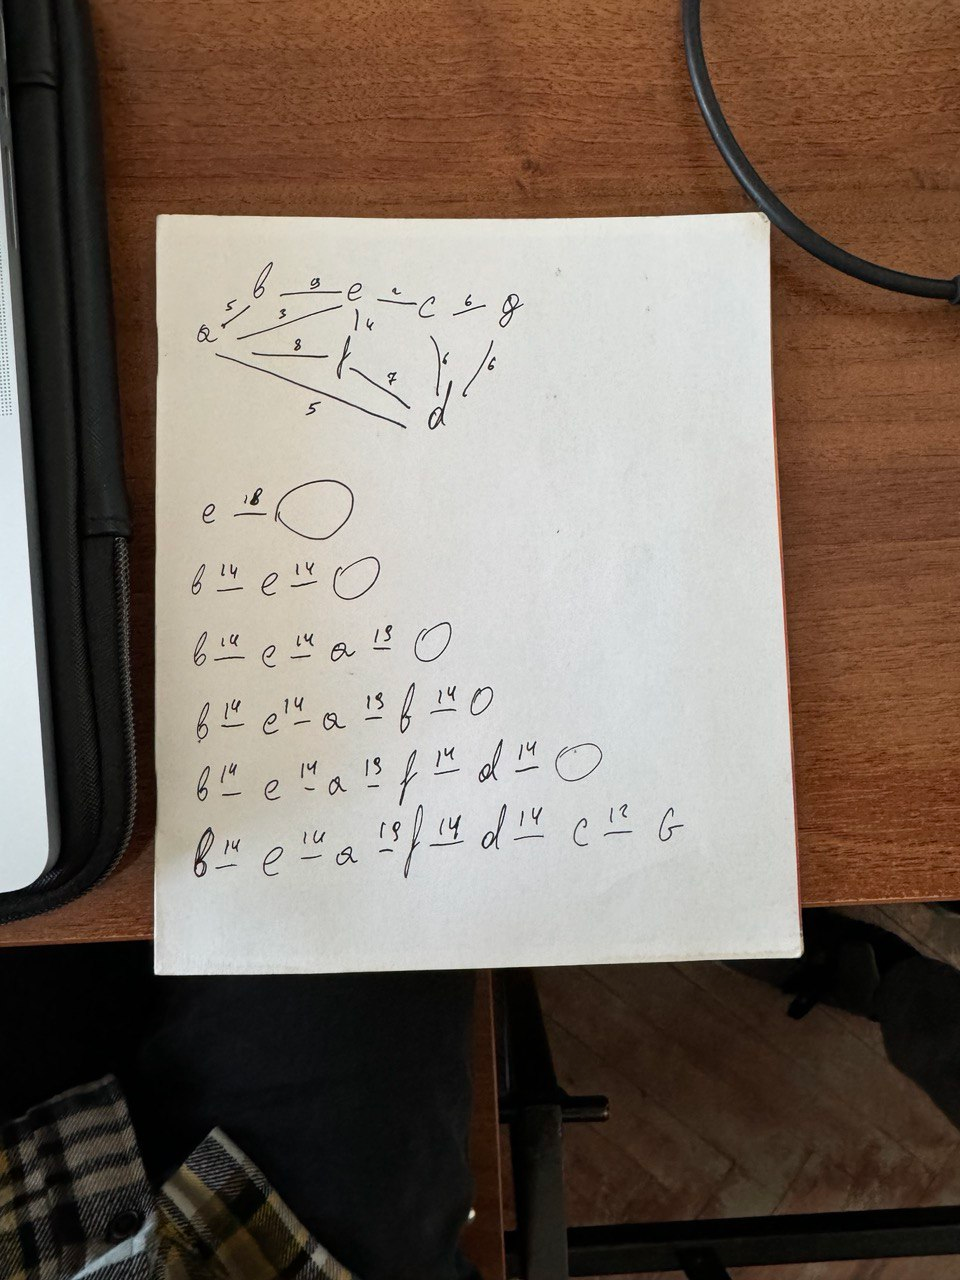 b 9 e 2 c 6 g
5 3 4
a 8 f 7 6 6
5 d
e 18
b 14 e 14
b 14 e 14 a 19
b 14 e 14 a 19 f 14
b 14 e 14 a 19 f 14 d 14
b 14 e 14 a 19 f 14 d 14 c 12 G